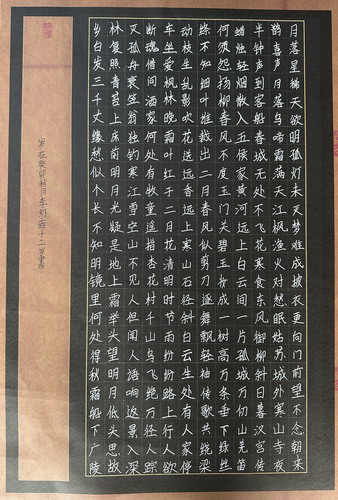 月落星稀天欲明孤灯未灭梦难成披衣更向门前望不忿朝来
鹊喜声月落乌啼霜满天江枫渔火对愁眠姑苏城外寒山寺夜
半钟声到客船春城无处不飞花寒食东风御柳斜日暮汉宫传
蜡烛轻烟散入五侯家黄河远上白云间一片孤城万仞山羌笛
何须怨杨柳春风不度玉门关碧玉妆成一树高万条垂下绿丝
绦不知细叶谁裁出二月春风似剪刀逐舞飘轻袖传歌共绕梁
动枝生乱影吹花送远香远上寒山石径斜白云生处有人家停
车坐爱枫林晚霜叶红于二月花清明时节雨纷纷路上行人欲
断魂借问酒家何处有牧童遥指杏花村千山鸟飞绝万径人踪
灭孤舟蓑笠翁独钓寒江雪空山不见人但闻人语响返景入深
林复照青苔上床前明月光疑是地上霜举头望明月低头思故
乡白发三千丈缘愁似个长不知明镜里何处得秋霜船下广陵
岁在癸卯秋月李十二岁书